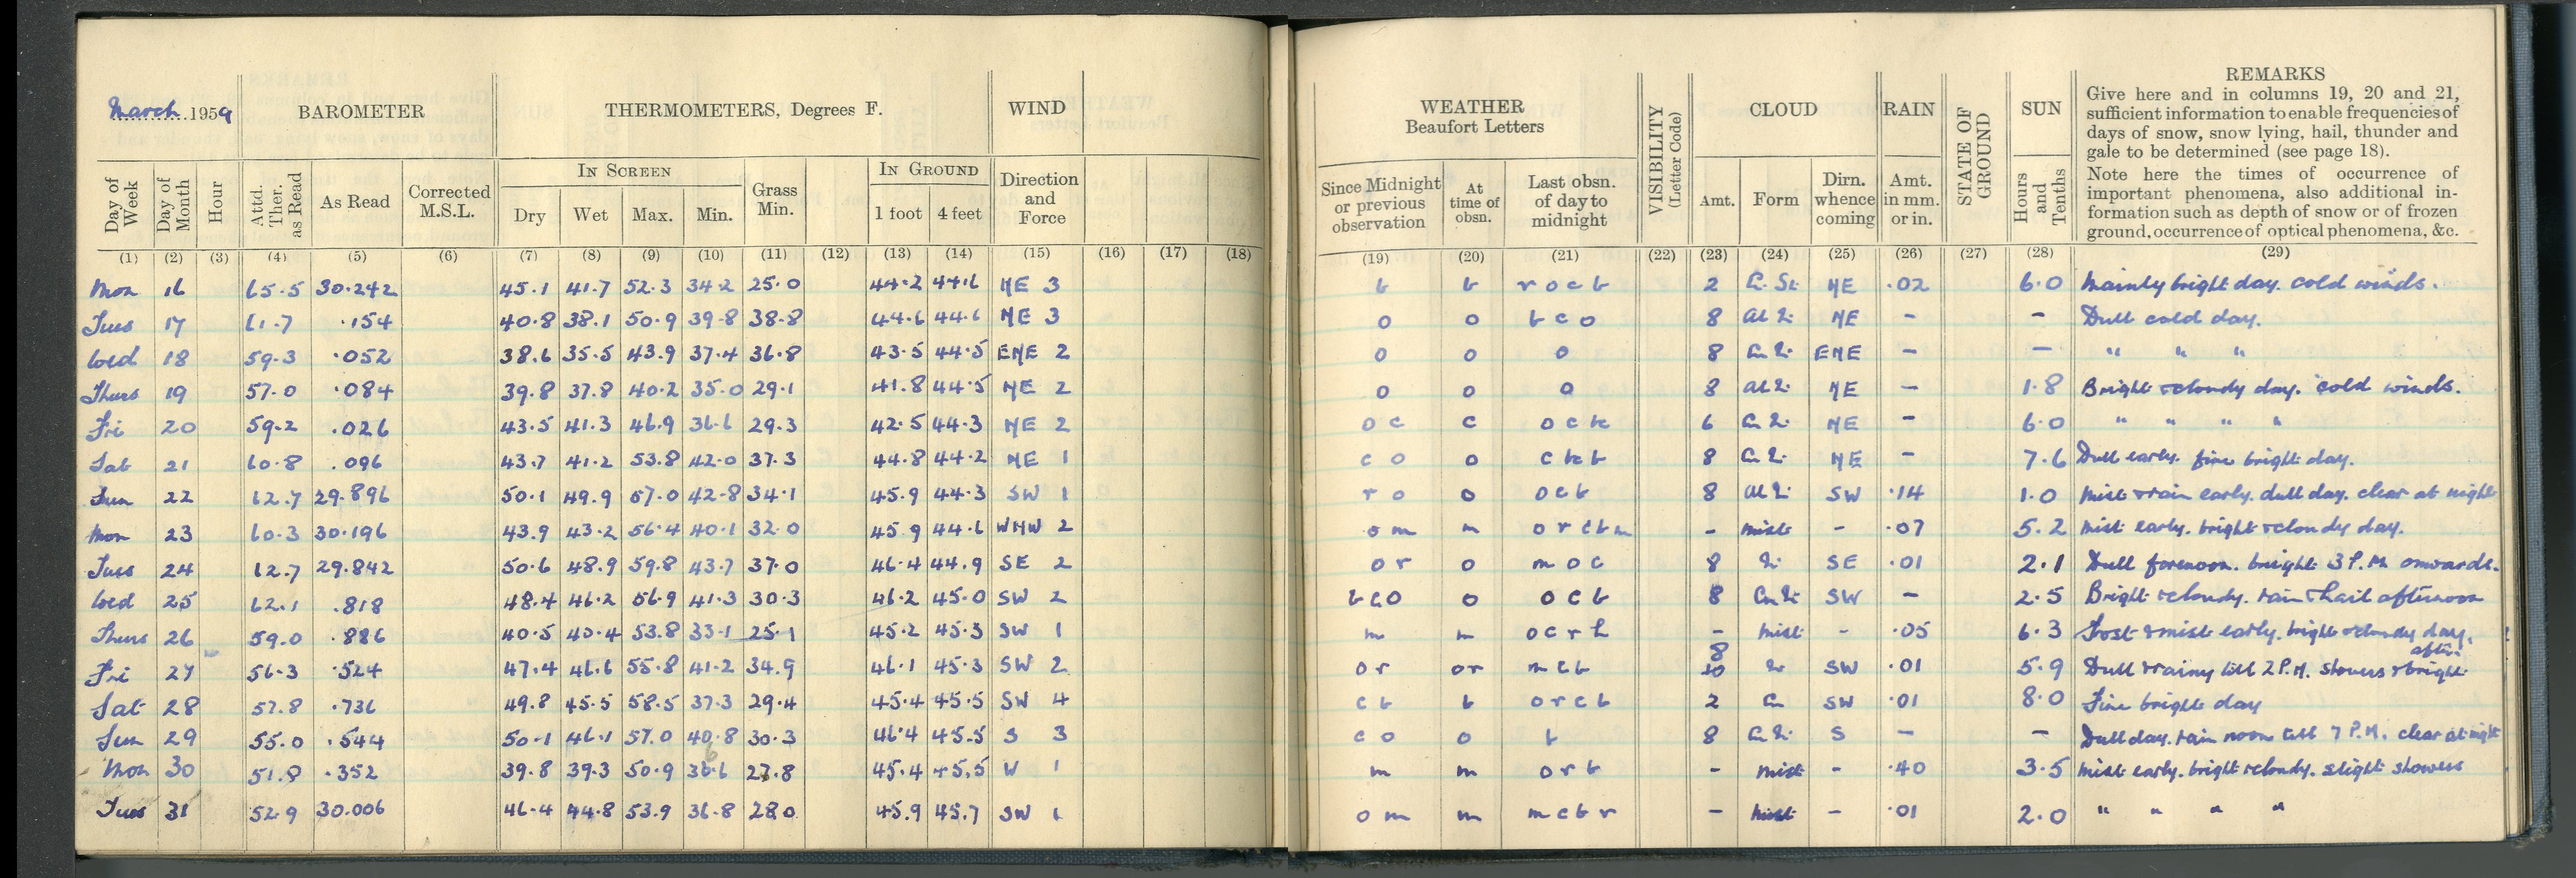 March 1959 BAROMETER THERMOMETERS, Degrees F. WIND
In Screen In Ground
Day of Week Day of Month Hour Attd. Ther. as Read As Read Corrected M.S.L. Dry Wet Max. Min. Grass Min. 1 foot 4 feet Direction and Force
(1) (2) (3) (4) (5) (6) (7) (8) (9) (10) (11) (12) (13) (14) (15) (16) (17) (18)
Mon 16 65.5 30.242 45.1 41.7 52.3 34.2 25.0 44.2 44.6 NE 3
Tues 17 61.7 .154 40.8 38.1 50.9 39.8 38.8 44.6 44.6 NE 3
Wed 18 59.3 .052 38.6 35.5 43.9 37.4 36.8 43.5 44.5 ENE 2
Thurs 19 57.0 .084 39.8 37.8 40.2 35.0 29.1 41.8 44.5 NE 2
Fri 20 59.2 .026 43.5 41.3 46.9 36.6 29.3 42.5 44.3 NE 2
Sat 21 60.8 .096 43.7 41.2 53.8 42.0 37.3 44.8 44.2 NE 1
Sun 22 62.7 29.896 50.1 49.9 57.0 42.8 34.1 45.9 44.3 SW 1
Mon 23 60.3 30.196 43.9 43.2 56.4 40.1 32.0 45.9 44.6 WNW 2
Tues 24 62.7 29.842 50.6 48.9 59.8 43.7 37.0 46.4 44.9 SE 2
Wed 25 62.1 .818 48.4 46.2 56.9 41.3 30.3 46.2 45.0 SW 2
Thurs 26 59.0 .886 40.5 40.4 53.8 33.1 25.1 45.2 45.3 SW 1
Fri 27 56.3 .524 47.4 46.6 55.8 41.2 34.9 46.1 45.3 SW 2
Sat 28 57.8 .736 49.8 45.5 58.5 37.3 29.4 45.4 45.5 SW 4
Sun 29 55.0 .544 50.1 46.1 57.0 40.8 30.3 46.4 45.5 S 3
Mon 30 51.8 .352 39.8 39.3 50.9 36.6 27.8 45.4 45.5 W 1
Tues 31 52.9 30.006 46.4 44.8 53.9 36.8 28.0 45.9 45.7 SW 1
WEATHER Beaufort Letters VISIBILITY (Letter Code) CLOUD RAIN STATE OF GROUND SUN REMARKS
Give here and in columns 19, 20 and 21,
sufficient information to enable frequencies of
days of snow, snow lying, hail, thunder and
gale to be determined (see page 18).
Note here the times of occurrence of
important phenomena, also additional in-
formation such as depth of snow or of frozen
ground, occurrence of optical phenomena, &c.
Since Midnight or previous observation At time of obsn. Last obsn. of day to midnight Amt. Form Dirn. whence coming Amt. in mm. or in. Hours and Tenths
(19) (20) (21) (22) (23) (24) (25) (26) (27) (28) (29)
b b r o c b 2 NE .02 6.0 Mainly bright day. cold winds.
o o b c o 8 NE – – Dull cold day.
o o o 8 ENE – – " " "
o o o 8 NE – 1.8 Bright & cloudy day. cold winds.
o c c o c 6 NE – 6.0 " " " "
c o o c 8 NE – 7.6 Dull early. fine bright day.
r o o o c b 8 SW .14 1.0 Mist & rain early. dull day. clear at night
o m m o r c b m – mist – .07 5.2 Mist early. bright & cloudy day.
o r o m o c 8 SE .01 2.1 Dull forenoon. bright 3 P.M. onwards.
b c o o o c b 8 SW – 2.5 Bright & cloudy. rain & hail afternoon
m m o c r h – mist – .05 6.3 Frost & mist early. bright & cloudy day.
o r o r m c b 8 SW .01 5.9 Dull & rainy till 2 P.M. showers & bright after.
c b b o r c b 2 SW .01 8.0 Fine bright day
c o o b 8 S – – Dull day. rain noon till 7 P.M. clear at night
m m o r b – mist – .40 3.5 Mist early. bright & cloudy. slight showers
o m m m c b r – mist – .01 2.0 " " " "